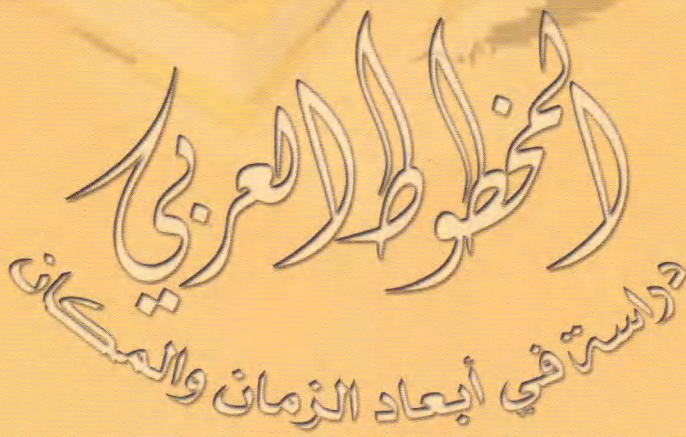 المخطوط العربي
دراسة في أبعاد الزمان والمكان